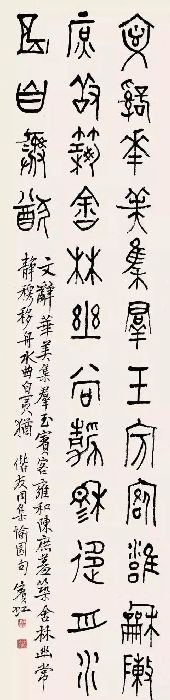 文辭華美集羣玉賓客雝龢敶
庶羞築舍林幽常靜穆移舟水
曲自夷猶
文辭華美集羣玉賓客雍和陳庶羞築舍林幽常
靜穆移舟水曲自夷猶 賓虹